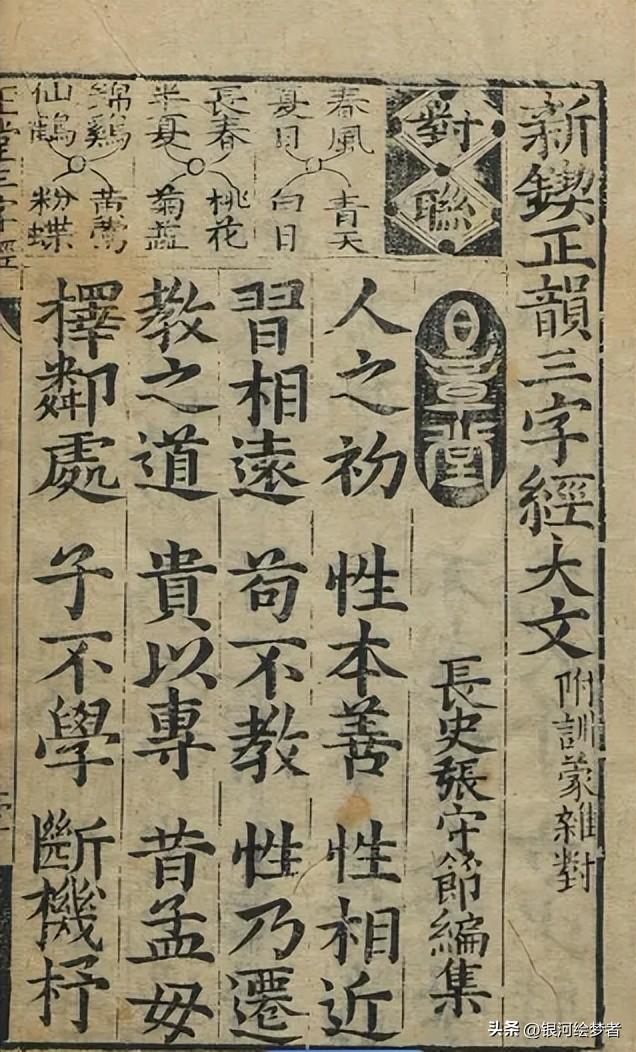 新鍥正韻三字經大文 附訓蒙雜對
對聯
堂
長史張守節編集
春風 青天
夏日 白日
長春 桃花
半夏 菊蕋
錦鷄 黃鶯
仙鶴 粉蝶
人之初 性本善 性相近
習相遠 苟不教 性乃遷
教之道 貴以專 昔孟母
擇鄰處 子不學 斷機杼
三字經
头条 @银河绘梦者